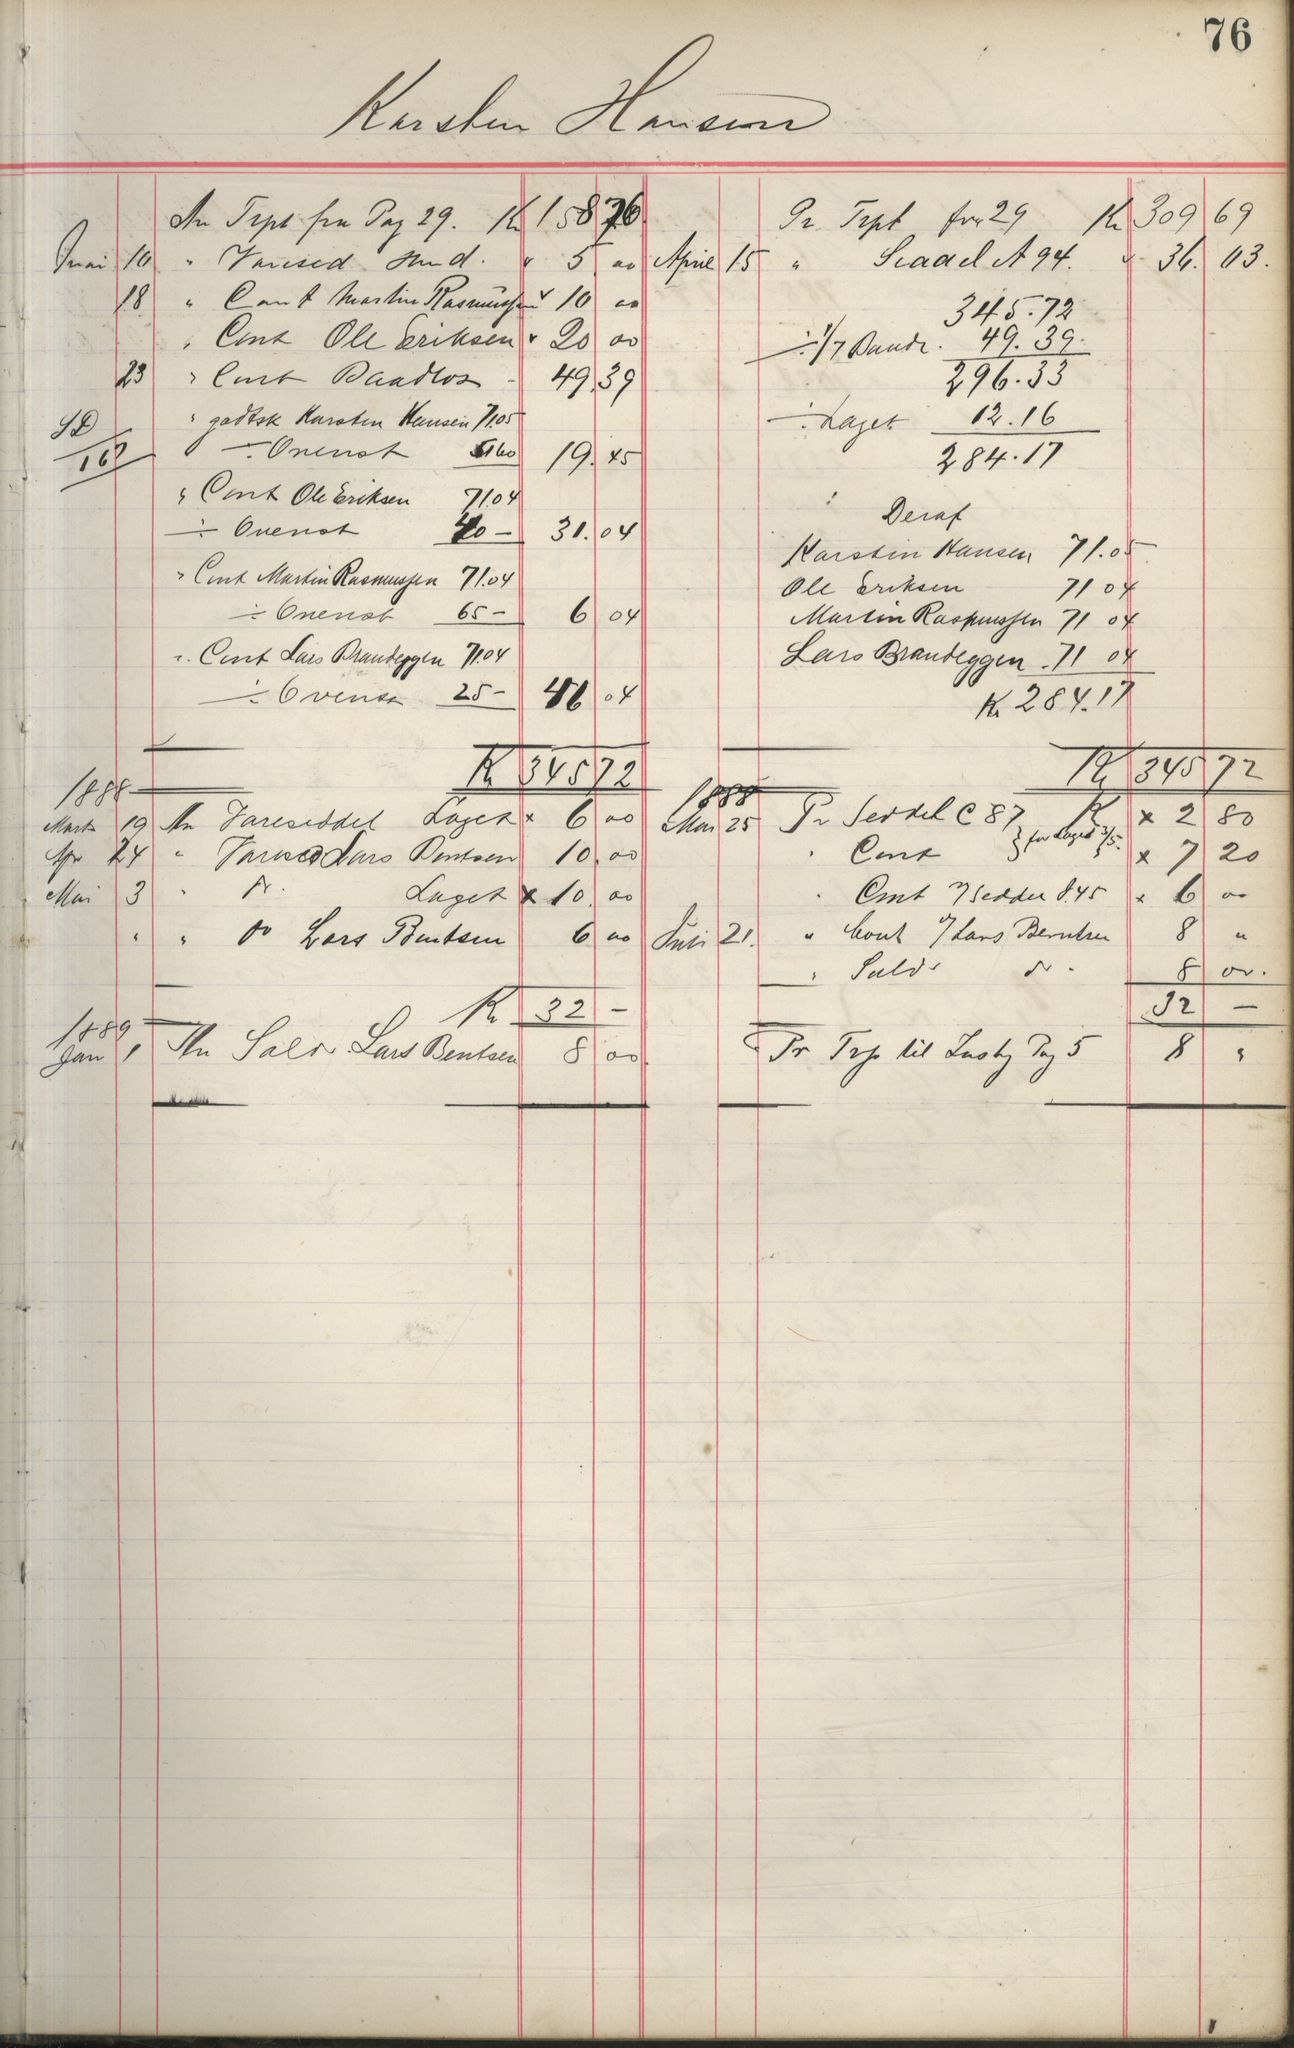 76
Karsten Hansen
An Trpt fra Pag 29. Kr 158 76
Mai 10 " Varesed " 5 00
18 " Cont Martin Rasmussen " 10 00
" Cont Ole Eriksen " 20 00
23 " Cont Baadlos 49.39
" godtsk Karsten Hansen 71.05
÷ Ovenst 51.60 19.45
" Cont Ole Eriksen 71.04
÷ Ovenst 40 – 31.04
" Cont Martin Rasmussen 71.04
÷ Ovenst 65 – 6 04
" Cont Lars Brandeggen 71.04
÷ Ovenst 25 – 46 04
Kr 345 72
1888
Marts 19 An Vareseddel Laget × 6 00
Apr 24 " Varesed Lars Bentsen 10.00
Mai 3 " do Laget × 10.00
" " " do Lars Bentsen 6 00
Kr 32 –
1889
Jan 1 An Saldo Lars Bentsen 8 00
Pr Trpt fra 29 Kr 309 69
April 15 " Seddel A 94. " 36.03.
345.72
÷ 1/7 Baadl. 49.39.
296.33
÷ Laget 12.16
284.17
Deraf
Karstin Hansen 71.05
Ole Eriksen 71 04
Martin Rasmussen 71 04
Lars Brandeggen 71 04
Kr 284.17
Kr 345 72
1888
Mai 25 Pr Seddel C 87 Kr × 2 80
" Cont } for Laget 3/5. × 7 20
" Cont Seddel 8.45 × 6 00
Juli 21. " Cont Lars Berntsen 8 "
" Saldo do 8 00.
32 –
Pr Trp til Pag 5 8 "